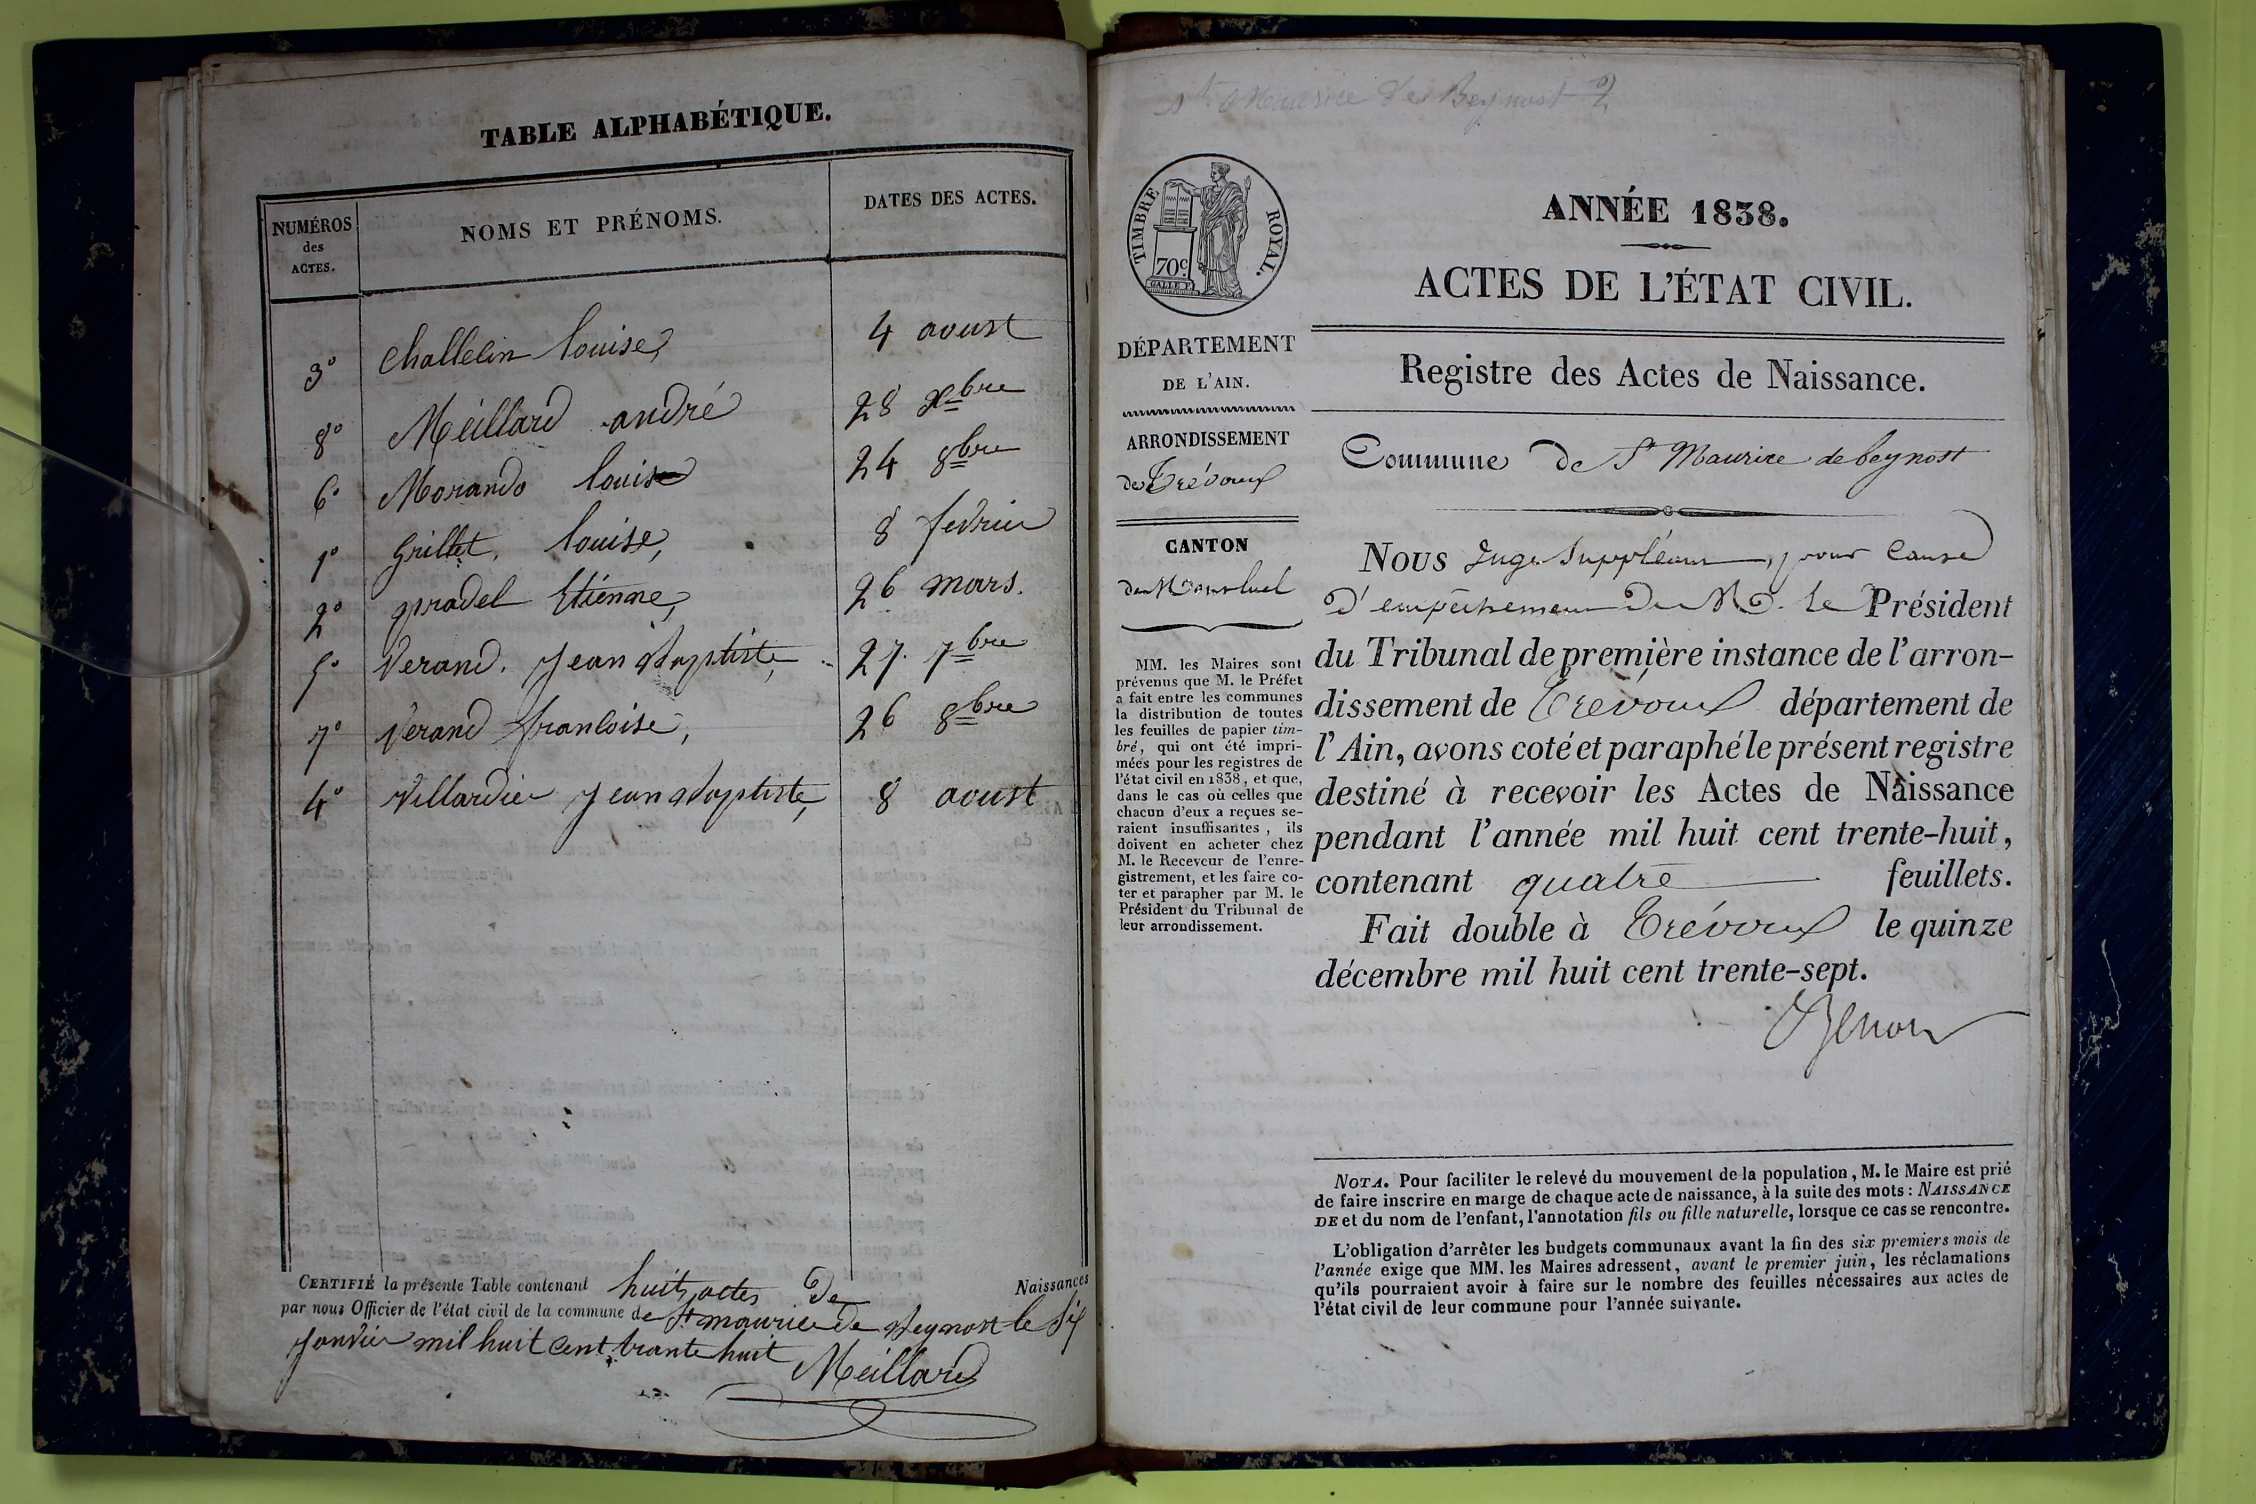 TABLE ALPHABÉTIQUE.
NUMÉROS
des
ACTES.
NOMS ET PRÉNOMS.
DATES DES ACTES.
3° Challelin louise, 4 aoust
8° Meillard andré 28 Xbre
6° Morando louise 24 8bre
1° Grillet, louise, 8 fevrier
2° pradel Etienne, 26 mars.
5° Verand. Jean Baptiste, 27. 7bre
7° Verand francoise, 26 8bre
4° Villardier Jean Baptiste, 8 aoust
CERTIFIÉ la présente Table contenant huit actes De Naissances
par nous Officier de l'état civil de la commune de St maurice de Beynost le Six
Janvier mil huit cent trante huit
Meillard
St Maurice de Beynost
TIMBRE ROYAL.
70c
ANNÉE 1838.
ACTES DE L'ÉTAT CIVIL.
Registre des Actes de Naissance.
Commune De St Maurice de beynost
DÉPARTEMENT
DE L'AIN.
ARRONDISSEMENT
de Trévoux
CANTON
de Montluel
MM. les Maires sont
prévenus que M. le Préfet
a fait entre les communes
la distribution de toutes
les feuilles de papier tim-
bré, qui ont été impri-
mées pour les registres de
l'état civil en 1838, et que,
dans le cas où celles que
chacun d'eux a reçues se-
raient insuffisantes, ils
doivent en acheter chez
M. le Receveur de l'enre-
gistrement, et les faire co-
ter et parapher par M. le
Président du Tribunal de
leur arrondissement.
NOUS Juge Suppléant, pour Cause
D'empêchement De M. Le Président
du Tribunal de première instance de l'arron-
dissement de Trévoux département de
l'Ain, avons coté et paraphé le présent registre
destiné à recevoir les Actes de Naissance
pendant l'année mil huit cent trente-huit,
contenant quatre feuillets.
Fait double à Trévoux le quinze
décembre mil huit cent trente-sept.
NOTA. Pour faciliter le relevé du mouvement de la population, M. le Maire est prié
de faire inscrire en marge de chaque acte de naissance, à la suite des mots: NAISSANCE
DE et du nom de l'enfant, l'annotation fils ou fille naturelle, lorsque ce cas se rencontre.
L'obligation d'arrêter les budgets communaux avant la fin des six premiers mois de
l'année exige que MM. les Maires adressent, avant le premier juin, les réclamations
qu'ils pourraient avoir à faire sur le nombre des feuilles nécessaires aux actes de
l'état civil de leur commune pour l'année suivante.